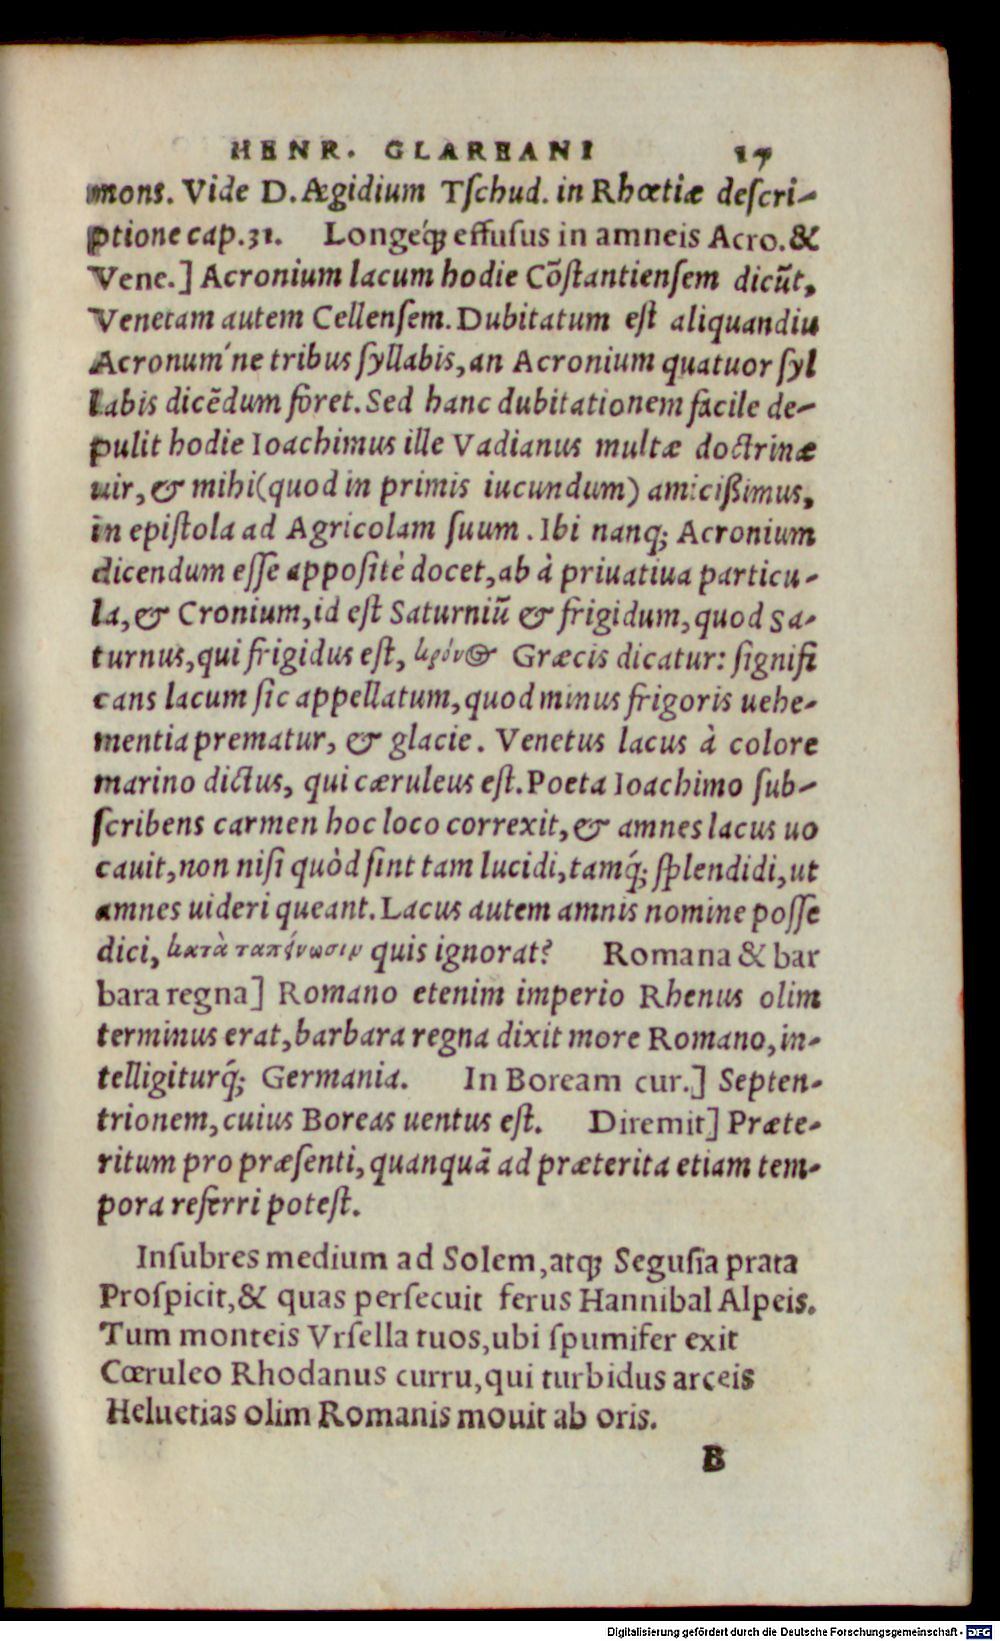 HENR. GLAREANI 17
mons. Vide D. Ægidium Tſchud. in Rhœtiæ deſcri-
ptione cap. 31. Longeq́ꝫ effuſus in amneis Acro. &
Vene.] Acronium lacum hodie Cōſtantienſem dicūt,
Venetam autem Cellenſem. Dubitatum eſt aliquandiu
Acronum'ne tribus ſyllabis, an Acronium quatuor ſyl
labis dicēdum foret. Sed hanc dubitationem facile de-
pulit hodie Ioachimus ille Vadianus multæ doctrinæ
uir, & mihi (quod in primis iucundum) amicißimus,
in epiſtola ad Agricolam ſuum. Ibi nanqꝫ Acronium
dicendum eſſe appoſitè docet, ab à priuatiua particu-
la, & Cronium, id eſt Saturniū & frigidum, quod Sa-
turnus, qui frigidus eſt, κρόνος Græcis dicatur: ſignifi
cans lacum ſic appellatum, quod minus frigoris uehe-
mentia prematur, & glacie. Venetus lacus à colore
marino dictus, qui cæruleus eſt. Poeta Ioachimo ſub-
ſcribens carmen hoc loco correxit, & amnes lacus uo
cauit, non niſi quòd ſint tam lucidi, tamq́ꝫ ſplendidi, ut
amnes uideri queant. Lacus autem amnis nomine poſſe
dici, κατὰ ταπείνωσιν quis ignorat? Romana & bar
bara regna] Romano etenim imperio Rhenus olim
terminus erat, barbara regna dixit more Romano, in-
telligiturq́ꝫ Germania. In Boream cur.] Septen-
trionem, cuius Boreas uentus eſt. Diremit] Præte-
ritum pro præſenti, quanquā ad præterita etiam tem-
pora referri poteſt.
Inſubres medium ad Solem, atqꝫ Seguſia prata
Proſpicit, & quas perſecuit ferus Hannibal Alpeis.
Tum monteis Vrſella tuos, ubi ſpumifer exit
Cœruleo Rhodanus curru, qui turbidus arceis
Heluetias olim Romanis mouit ab oris.
B
Digitalisierung gefördert durch die Deutsche Forschungsgemeinschaft - DFG